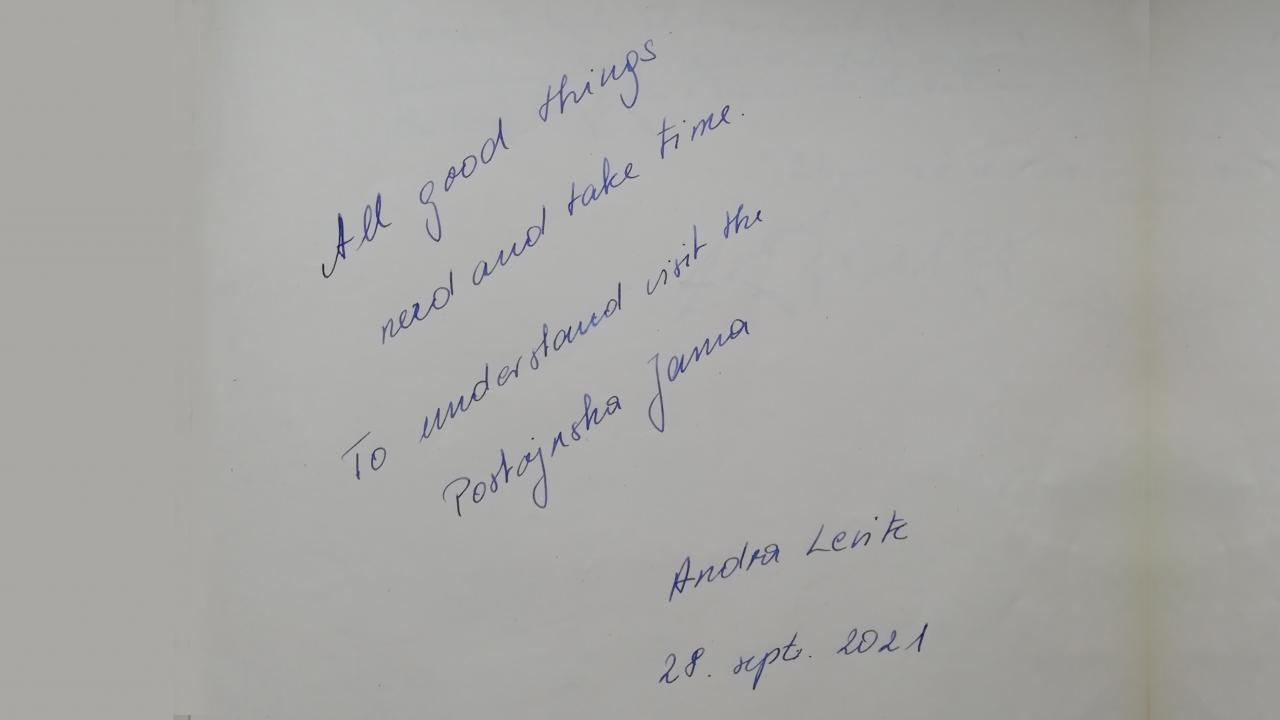 All good things
need and take time.
To understand visit the
Postojnska Jama
Andra Levite
28. sept. 2021